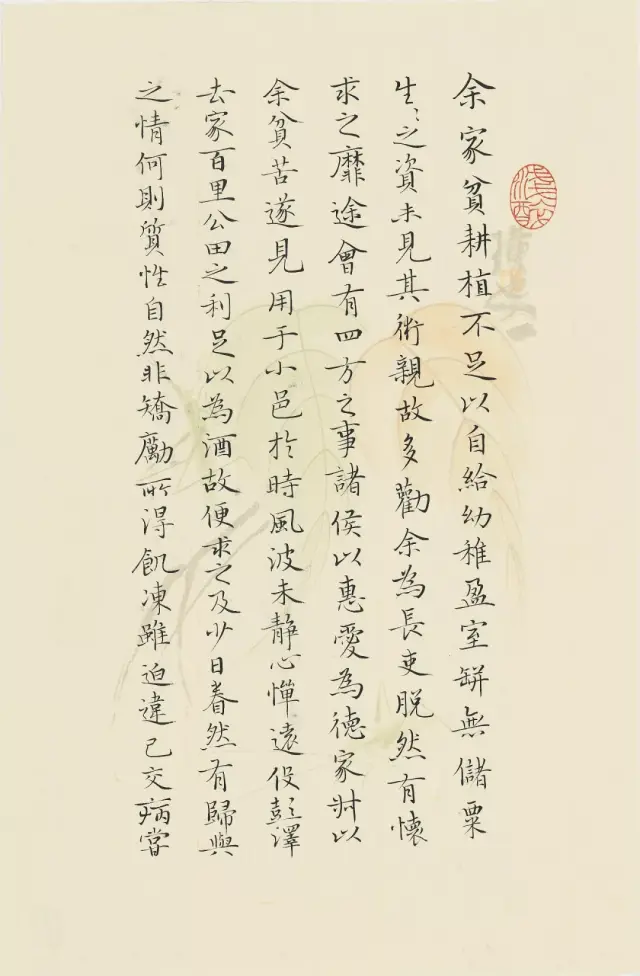 余家貧耕植不足以自給幼稚盈室缾無儲粟
生〻之資未見其術親故多勸余為長吏脱然有懷
求之靡途會有四方之事諸侯以惠愛為德家叔以
余貧苦遂見用于小邑於時風波未静心憚遠役彭澤
去家百里公田之利足以為酒故便求之及少日眷然有歸與
之情何則質性自然非矯勵所得飢凍雖迫違己交病嘗